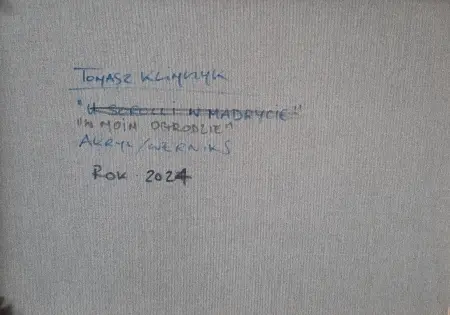 Tomasz Klimczyk
"U SOROLLI W MADRYCIE"
"W MOIM OGRODZIE"
AKRYL/WERNIKS
ROK 2024